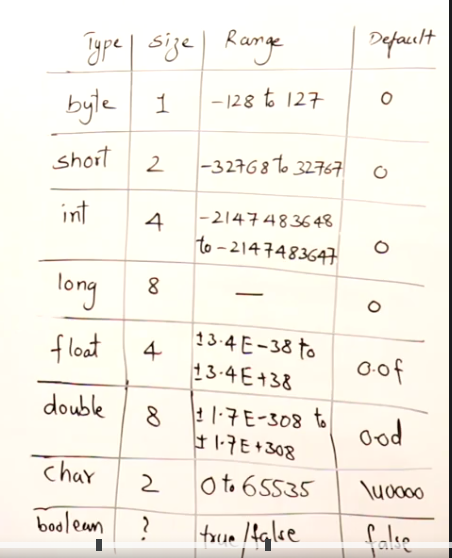 Type Size Range Default
byte 1 -128 to 127 0
short 2 -32768 to 32767 0
int 4 -2147483648
to -2147483647 0
long 8 — 0
float 4 ±3.4E-38 to
±3.4E+38 0.0f
double 8 ±1.7E-308 to
±1.7E+308 0.0d
char 2 0 to 65535 \u0000
boolean ? true/false false